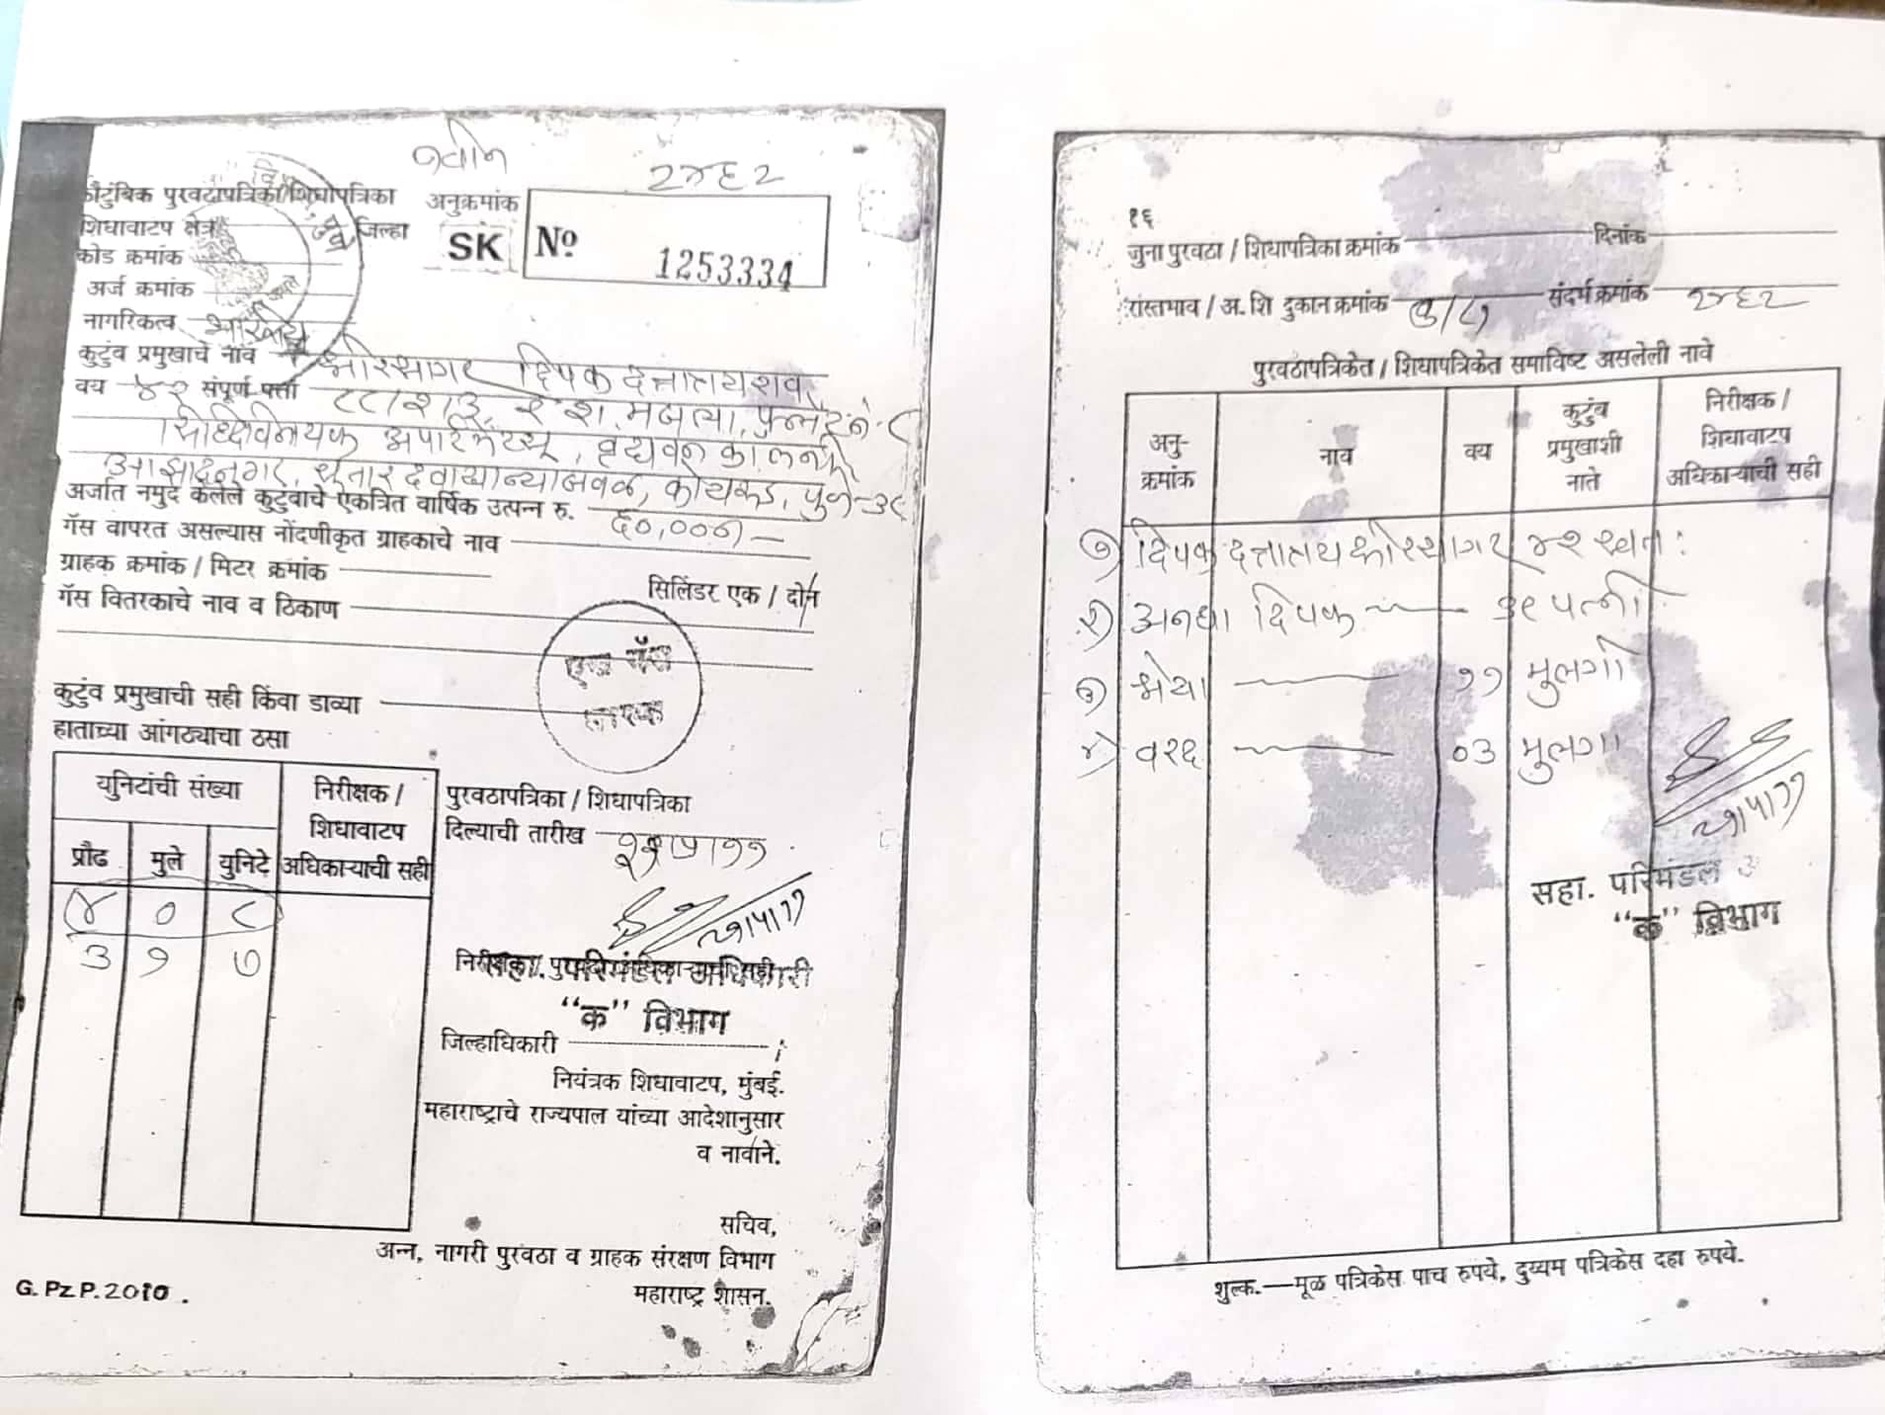 नवीन
२४६२
कौटुंबिक पुरवठापत्रिका/शिधापत्रिका अनुक्रमांक
शिधावाटप क्षेत्र जिल्हा
SK No 1253334
कोड क्रमांक
अर्ज क्रमांक
नागरिकत्व भारतीय
कुटुंब प्रमुखाचे नांव क्षीरसागर दिपक दत्तात्रय
वय ४२ संपूर्ण पत्ता मजला, फ्लॅट नं. ८
सिध्दिविनायक अपार्टमेंटस्,
आझादनगर, कोथरुड, पुणे-
अर्जात नमुद केलेले कुटुंबाचे एकत्रित वार्षिक उत्पन्न रु. ६०,०००/-
गॅस वापरत असल्यास नोंदणीकृत ग्राहकाचे नाव
ग्राहक क्रमांक / मिटर क्रमांक
सिलिंडर एक / दोन
गॅस वितरकाचे नाव व ठिकाण
एक गॅस
धारक
कुटुंब प्रमुखाची सही किंवा डाव्या
हाताच्या आंगठ्याचा ठसा
युनिटांची संख्या निरीक्षक / शिधावाटप अधिकाऱ्याची सही
प्रौढ मुले युनिटे
४ ० ८
३ १ ७
पुरवठापत्रिका / शिधापत्रिका
दिल्याची तारीख
सहा. परिमंडल अधिकारी
“क” विभाग
जिल्हाधिकारी
नियंत्रक शिधावाटप, मुंबई.
महाराष्ट्राचे राज्यपाल यांच्या आदेशानुसार
व नावाने.
सचिव,
अन्न, नागरी पुरवठा व ग्राहक संरक्षण विभाग
महाराष्ट्र शासन.
G.PzP.2010.
१६
जुना पुरवठा / शिधापत्रिका क्रमांक दिनांक
रास्तभाव / अ. शि दुकान क्रमांक संदर्भ क्रमांक २४६२
पुरवठापत्रिकेत / शिधापत्रिकेत समाविष्ट असलेली नावे
अनु-क्रमांक नाव वय कुटुंब प्रमुखाशी नाते निरीक्षक / शिधावाटप अधिकाऱ्याची सही
१) दिपक दत्तात्रय क्षीरसागर ४२ स्वत:
२) अनघा दिपक ३९ पत्नी
३) श्रेया ११ मुलगी
४) वरद ०३ मुलगा
सहा. परिमंडल
“क” विभाग
शुल्क.—मूळ पत्रिकेस पाच रुपये, दुय्यम पत्रिकेस दहा रुपये.